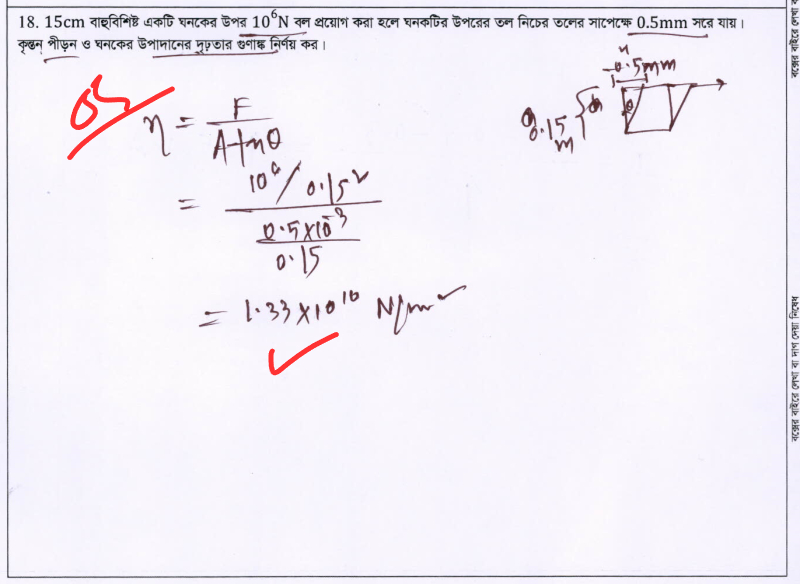 18. 15cm বাহুবিশিষ্ট একটি ঘনকের উপর 10⁶N বল প্রয়োগ করা হলে ঘনকটির উপরের তল নিচের তলের সাপেক্ষে 0.5mm সরে যায়।
কৃন্তন পীড়ন ও ঘনকের উপাদানের দৃঢ়তার গুণাঙ্ক নির্ণয় কর।
0.5mm
0.15
m
θ
05
η = F / A tanθ
= 10⁶ / 0.15²
0.5×10⁻³
0.15
= 1.33×10¹⁰ N/m²
বক্সের বাইরে লেখা বা দাগ দেয়া নিষেধ